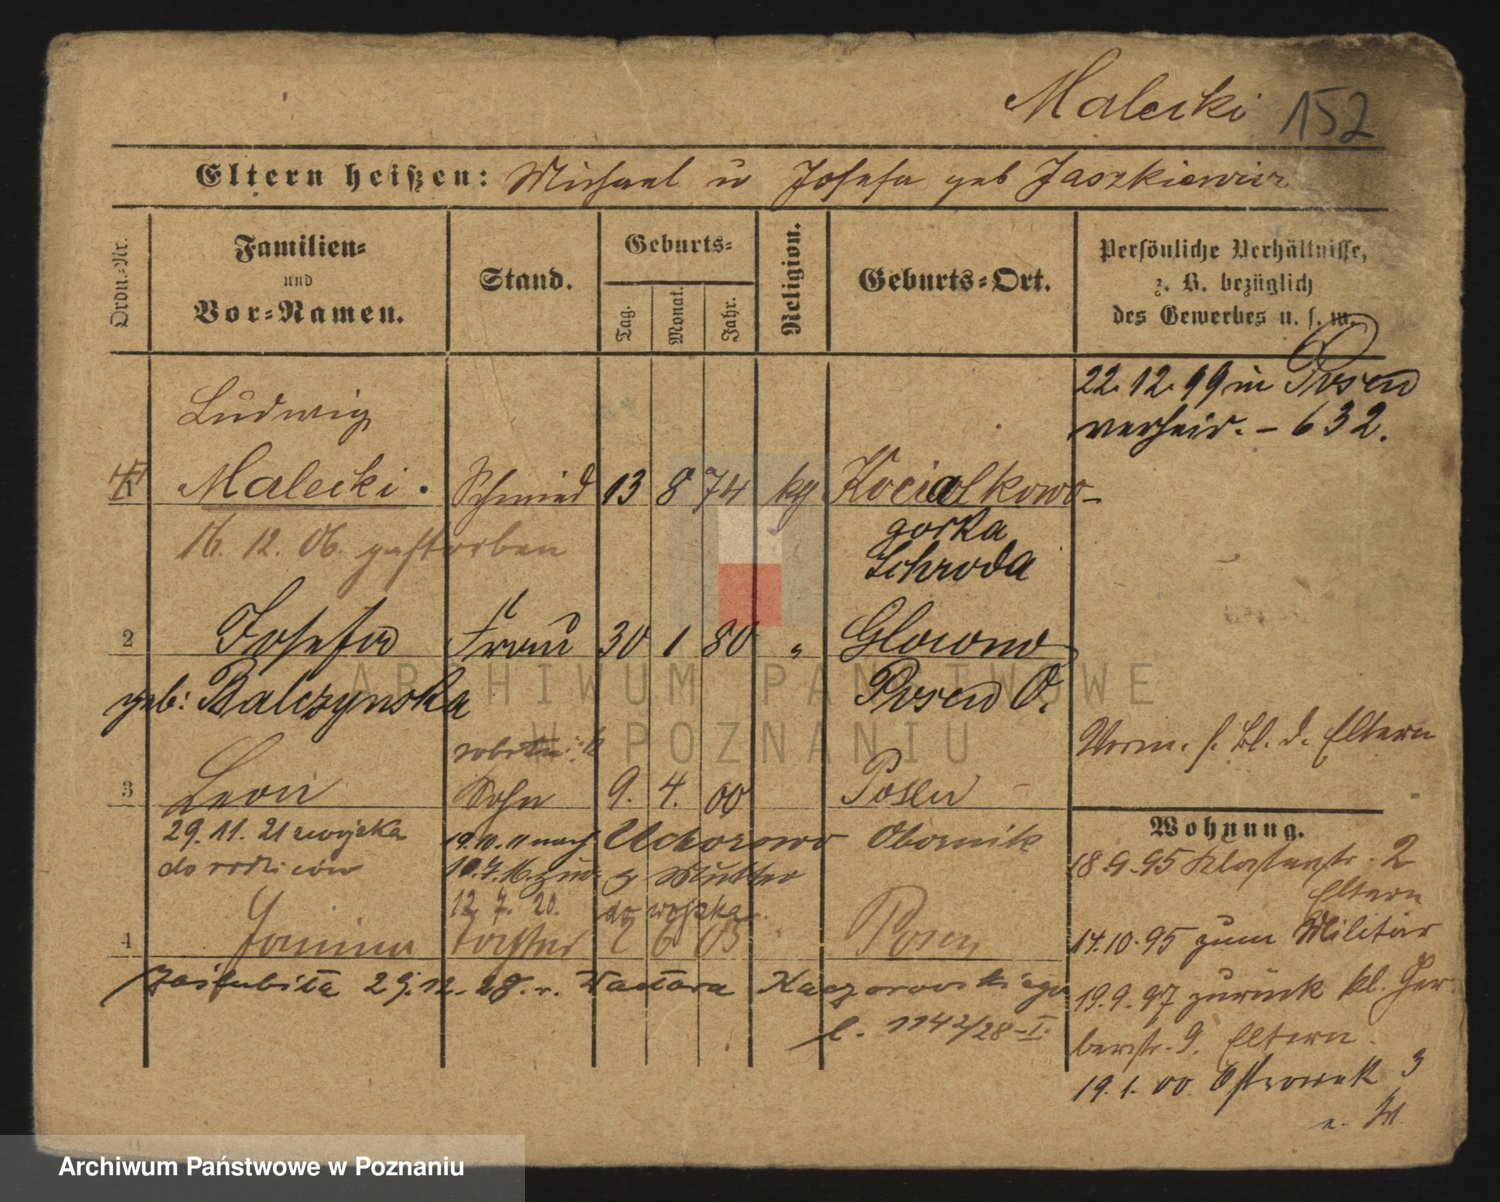 Malecki 152
Eltern heißen: Michael u Josefa geb Jaszkiewicz
Ordn.-Nr.
Familien-
und
Vor-Namen.
Stand.
Geburts-
Tag.
Monat.
Jahr.
Religion.
Geburts-Ort.
Persönliche Verhältnisse,
z. B. bezüglich
des Gewerbes u. s. w.
22.12.99 in Posen
verheir. - 632.
Ludwig
1 Malecki. Schmied 13 8 74 kg Kocialkowo-
gorka
Schroda
16. 12. 06. gestorben
2 Josefa Frau 30 1 80 " Glowno
geb: Balczynska Posen O.
Verm. s. Bl. d. Eltern
3 Leon Sohn 9. 4. 00 Posen
29.11.21 z wojska
do rodziców
19.10.11 nach Uchorowo Obornik
10.4.16. zur. z Mutter
12. 7. 20. do wojska
4 Janina Tochter 2 6 05 " Posen
Zaślubiła 29.12.28. r. Wactora Kaczorowskiego
l. 1142/28-I.
Wohnung.
18.9.95 Klosterstr. 2
Eltern
14.10.95 zum Militär
19.9.97 zurück kl. Ger-
berstr. 9. Eltern.
19.1.00 Ostrowek 3
ARCHIWUM PAŃSTWOWE
W POZNANIU
Archiwum Państwowe w Poznaniu